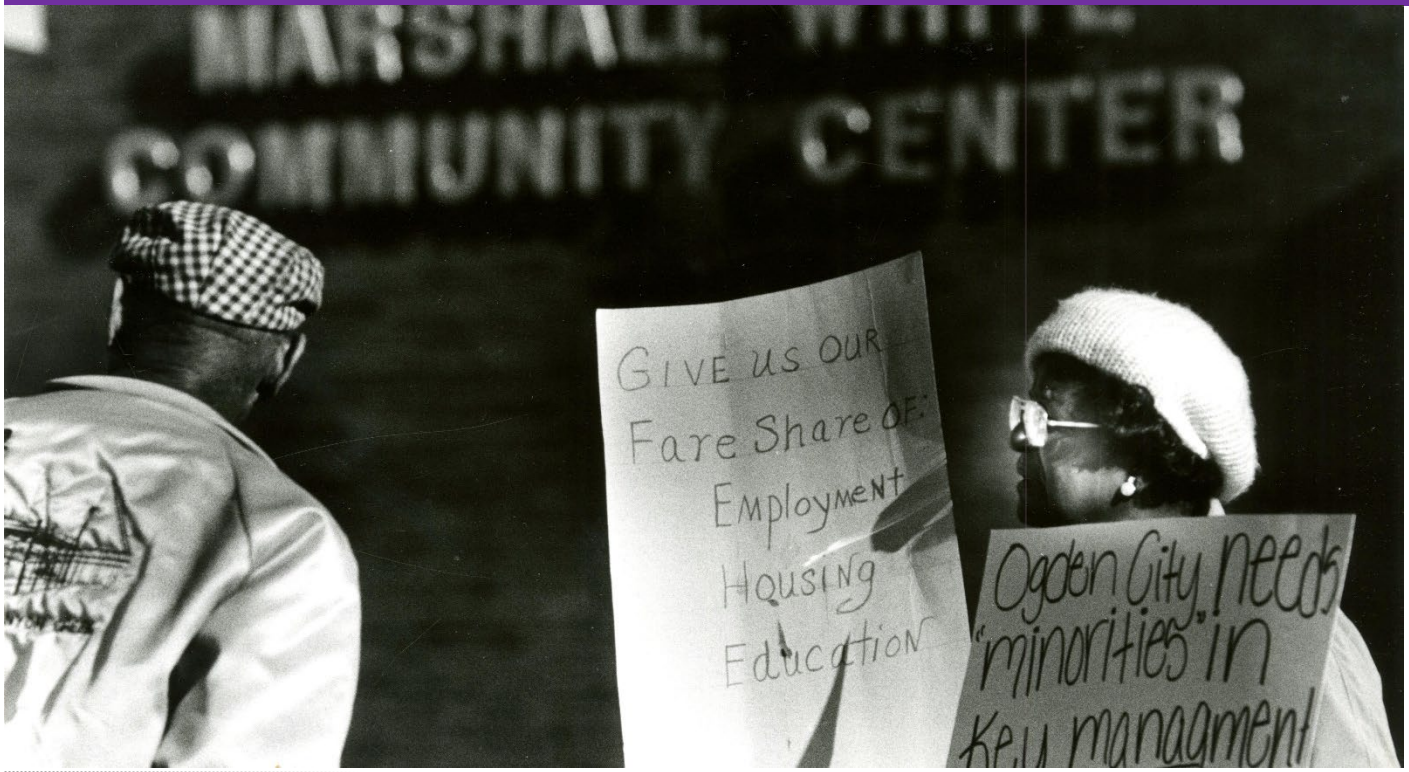 MARSHALL WHITE
COMMUNITY CENTER
GIVE US OUR
Fare Share OF:
Employment
Housing
Education
Ogden City needs
"minorities" in
Key managment